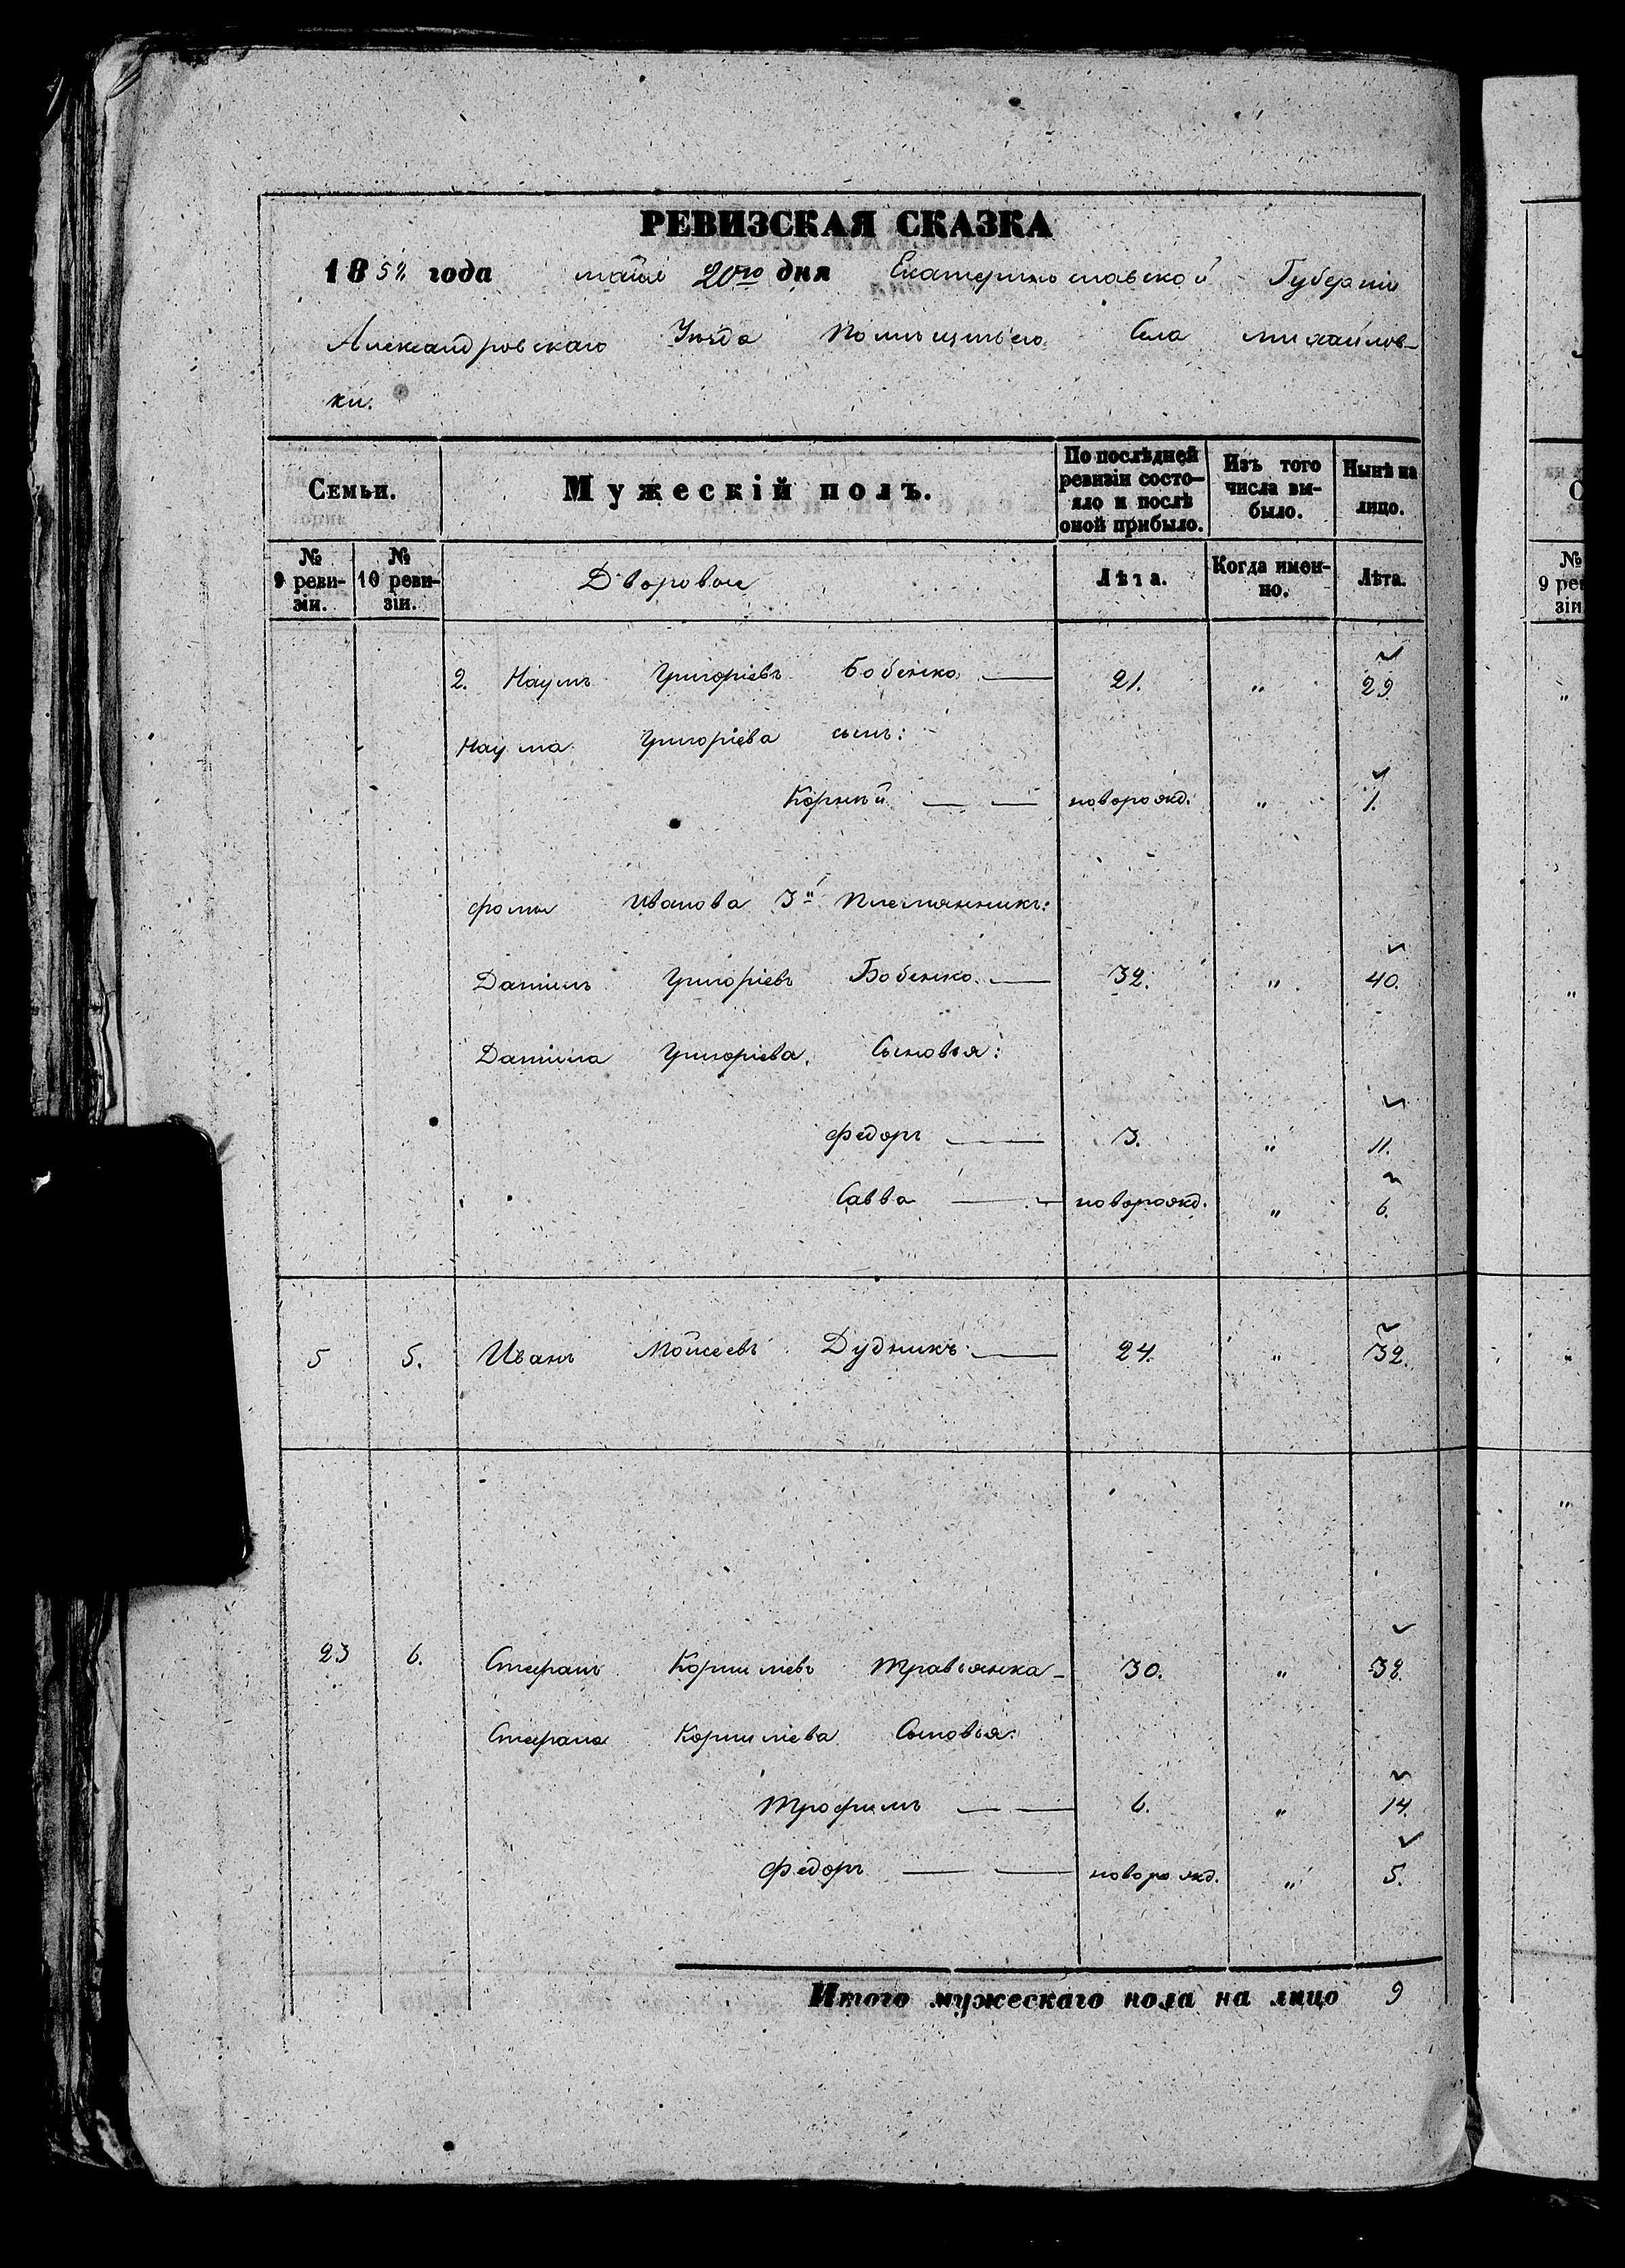 РЕВИЗСКАЯ СКАЗКА
185 года маія 20го дня Екатеринославской Губерніи
Александровскаго Уѣзда Села Михайлов-
ки.
Семьи.
Мужескій полъ.
По послѣдней ревизіи состо-яло и послѣ оной прибыло.
Изъ того числа вы-было.
Нынѣ на лицо.
№ 9 реви-зіи.
№ 10 реви-зіи.
Дворовые
Лѣта.
Когда имен-но.
Лѣта.
2. Наумъ Григоріевъ Бобенко — 21. " 29.
Наума Григоріева сынъ:
Корнѣй — — новорожд. " 1.
Фомы Иванова 3й Племянникъ:
Данилъ Григоріевъ Бобенко. — 32. " 40.
Данила Григоріева Сыновья:
Федоръ — 3. " 11.
Савва — новорожд. " 6.
5 5. Иванъ Мойсеевъ Дудникъ — 24. " 32.
23 6. Стефанъ Корнилевъ Травянка — 30. " 38.
Стефана Корнилева Сыновья:
Трофимъ — — 6. " 14.
Федоръ — — новорожд. " 5.
Итого мужескаго пола на лицо 9
№
9 рев
зіи